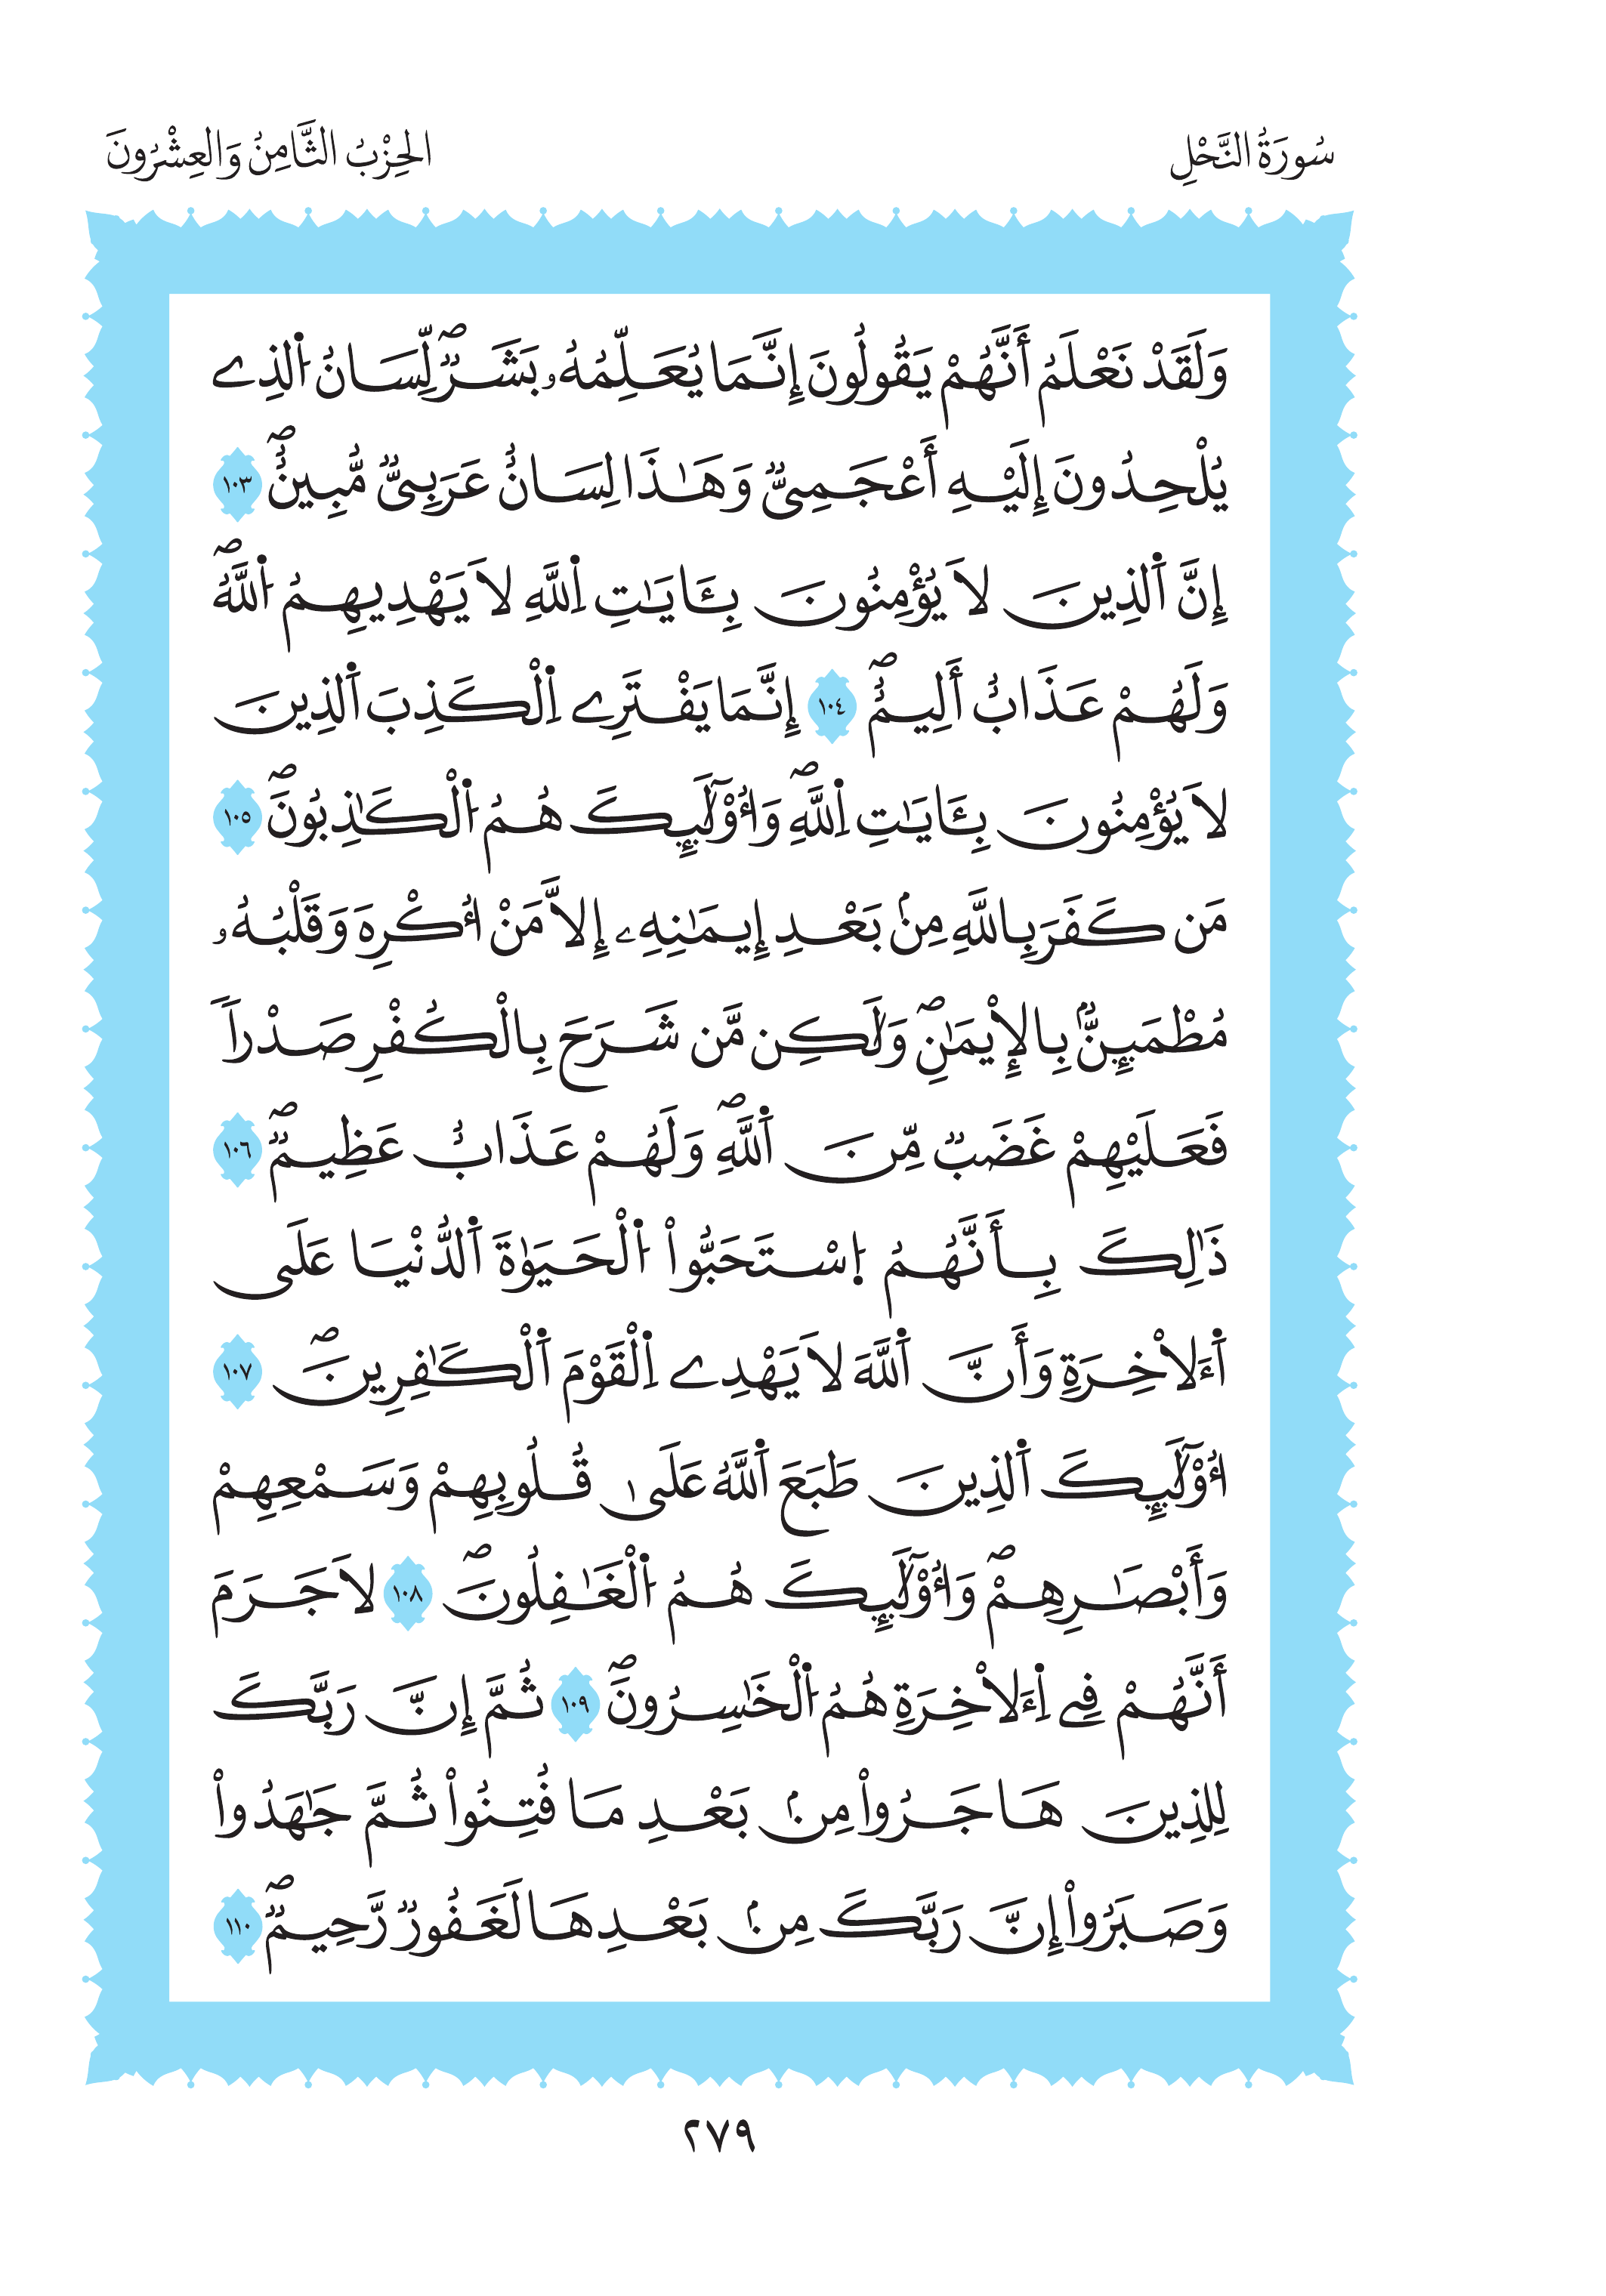 سُورَةُ النَّحْلِ
الحِزْبُ الثَّامِنُ وَالعِشْرُونَ
وَلَقَدْ نَعْلَمُ أَنَّهُمْ يَقُولُونَ إِنَّمَا يُعَلِّمُهُۥ بَشَرٞۖ لِّسَانُ اُ۬لذِے
يُلْحِدُونَ إِلَيْهِ أَعْجَمِيّٞ وَهَٰذَا لِسَانٌ عَرَبِيّٞ مُّبِينٌۖ ١٠٣
إِنَّ اَ۬لذِينَ لَا يُؤْمِنُونَ بِـَٔايَٰتِ اِ۬للَّهِ لَا يَهْدِيهِمُ اُ۬للَّهُۖ
وَلَهُمْ عَذَابٌ أَلِيمٌۖ ١٠٤ إِنَّمَا يَفْتَرِے اِ۬لْكَذِبَ اَ۬لذِينَ
لَا يُؤْمِنُونَ بِـَٔايَٰتِ اِ۬للَّهِۖ وَأُوْلَٰٓئِكَ هُمُ اُ۬لْكَٰذِبُونَۖ ١٠٥
مَن كَفَرَ بِاللَّهِ مِنۢ بَعْدِ إِيمَٰنِهِۦ إِلَّا مَنْ أُكْرِهَ وَقَلْبُهُۥ
مُطْمَئِنُّۢ بِالْإِيمَٰنِۖ وَلَٰكِن مَّن شَرَحَ بِالْكُفْرِ صَدْراٗ
فَعَلَيْهِمْ غَضَبٞ مِّنَ اَ۬للَّهِۖ وَلَهُمْ عَذَابٌ عَظِيمٞۖ ١٠٦
ذَٰلِكَ بِأَنَّهُمُ اُ۪سْتَحَبُّواْ اُ۬لْحَيَوٰةَ اَ۬لدُّنْيَا عَلَى
اَ۬لَاخِرَةِ وَأَنَّ اَ۬للَّهَ لَا يَهْدِے اِ۬لْقَوْمَ اَ۬لْكَٰفِرِينَۖ ١٠٧
أُوْلَٰٓئِكَ اَ۬لذِينَ طَبَعَ اَ۬للَّهُ عَلَىٰ قُلُوبِهِمْ وَسَمْعِهِمْ
وَأَبْصَٰرِهِمْۖ وَأُوْلَٰٓئِكَ هُمُ اُ۬لْغَٰفِلُونَۖ ١٠٨ لَا جَرَمَ
أَنَّهُمْ فِے اِ۬لَاخِرَةِ هُمُ اُ۬لْخَٰسِرُونَۖ ١٠٩ ثُمَّ إِنَّ رَبَّكَ
لِلذِينَ هَاجَرُواْ مِنۢ بَعْدِ مَا فُتِنُواْ ثُمَّ جَٰهَدُواْ
وَصَبَرُواْ إِنَّ رَبَّكَ مِنۢ بَعْدِهَا لَغَفُورٞ رَّحِيمٞۖ ١١٠
٢٧٩